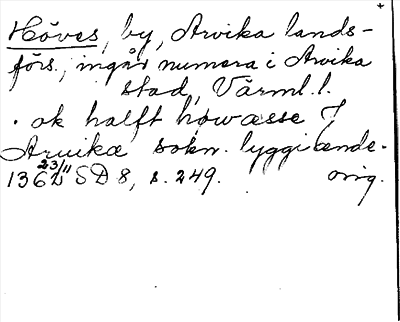 Höves, by, Arvika lands-
förs., ingår numera i Arvika
stad, Värml. l.
. ok halft höwæsse J
Arvika sokn. lyggiænde.
1362 23/11 SD 8, s. 249. orig.